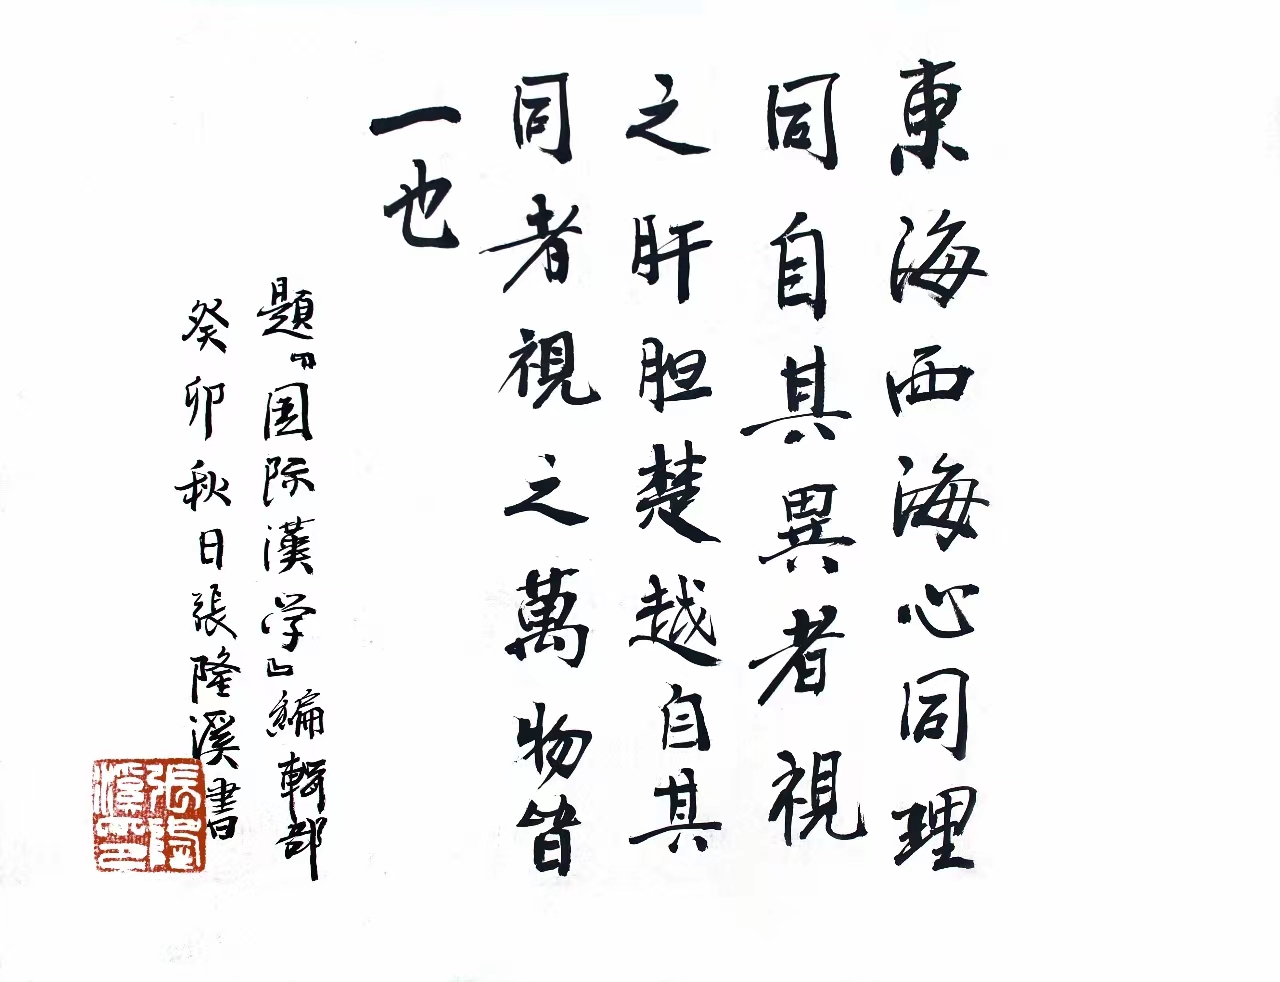 東海西海心同理
同自其異者視
之肝胆楚越自其
同者視之萬物皆
一也
題『国际漢学』編輯部
癸卯秋日張隆溪書